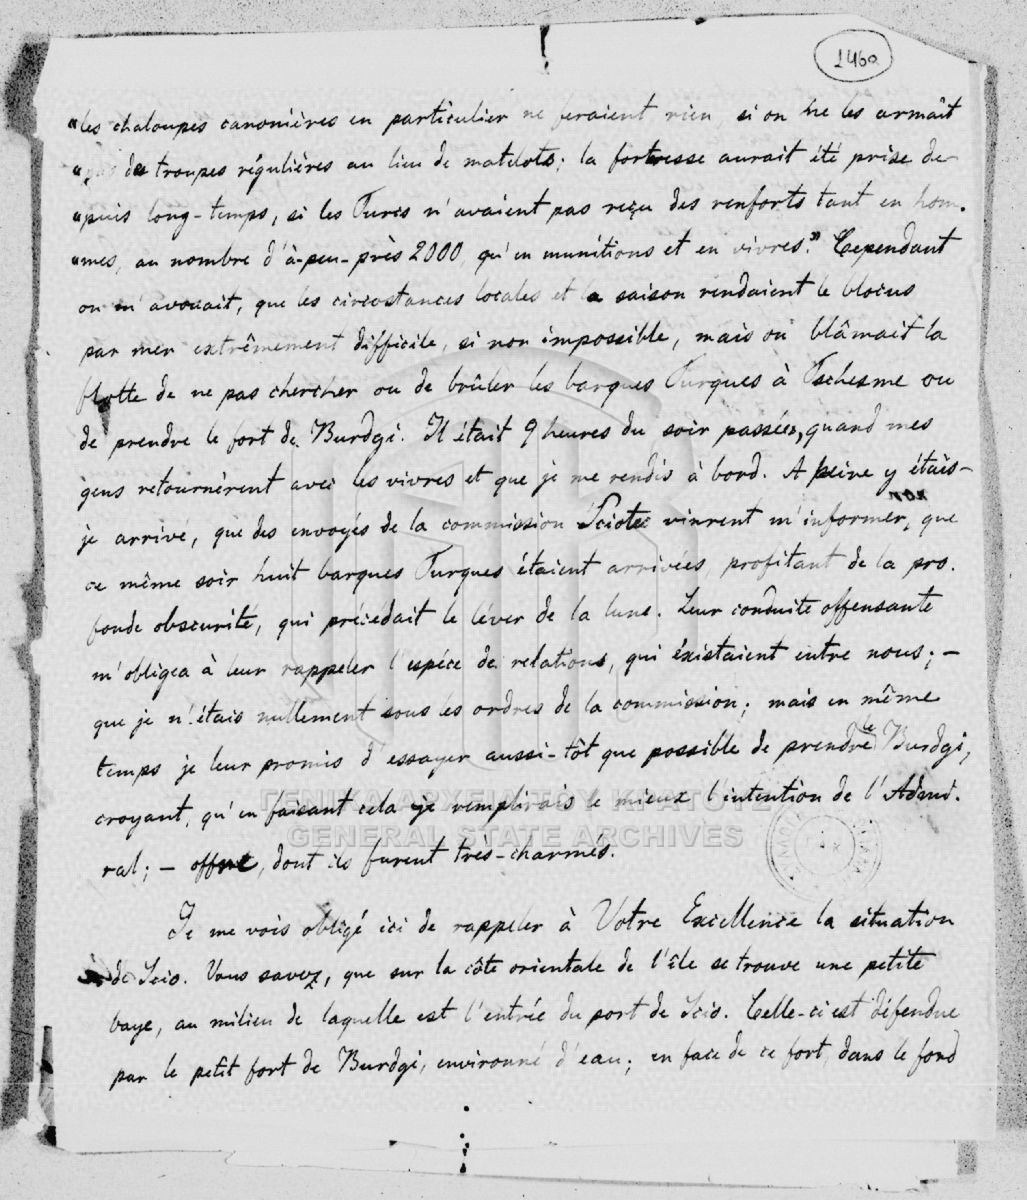 146a
"les chaloupes canonières en particulier ne feraient rien si on ne les armaît
" de troupes régulières au lieu de matelots; la forteresse aurait été prise de-
"puis long-temps, si les Turcs n'avaient pas reçu des renforts tant en hom-
"mes, au nombre d'à-peu-près 2000, qu'en munitions et en vivres." Cependant
on m'avouait, que les circostances locales et la saison rendaient le blocus
par mer extrêmement difficile, si non impossible, mais on blâmait la
flotte de ne pas chercher ou de brûler les barques Turques à Tschesme ou
de prendre le fort de Burdgi. Il était 9 heures du soir passées, quand mes
gens retournèrent avec les vivres et que je me rendis à bord. A peine y étais-
je arrivé, que des envoyés de la commission Sciote vinrent m'informer, que
ce même soir huit barques Turques étaient arrivées, profitant de la pro-
fonde obscurité, qui précédait le léver de la lune. Leur conduite offensante
m'obligea à leur rappeler l'espéce de relations, qui éxistaient entre nous; –
que je n'étais nullement sous les ordres de la commission; mais en même
temps je leur promis d'essayer aussi-tôt que possible de prendre le Burdgi,
croyant, qu'en faisant cela je remplirais le mieux l'intention de l'Admi-
ral; – offre, dont ils furent très-charmés.
Je me vois obligé ici de rappeler à Votre Excellence la situation
de Scio. Vous savez, que sur la côte orientale de l'île se trouve une petite
baye, au milieu de laquelle est l'entrée du port de Scio. Celle-ci est défendue
par le petit fort de Burdgi, environné d'eau; en face de ce fort, dans le fond
ΓΕΝΙΚΑ ΑΡΧΕΙΑ ΤΟΥ ΚΡΑΤΟΥΣ
GENERAL STATE ARCHIVES